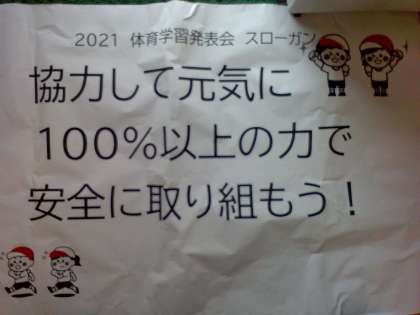 2021 体育学習発表会 スローガン
協力して元気に
100%以上の力で
安全に取り組もう！